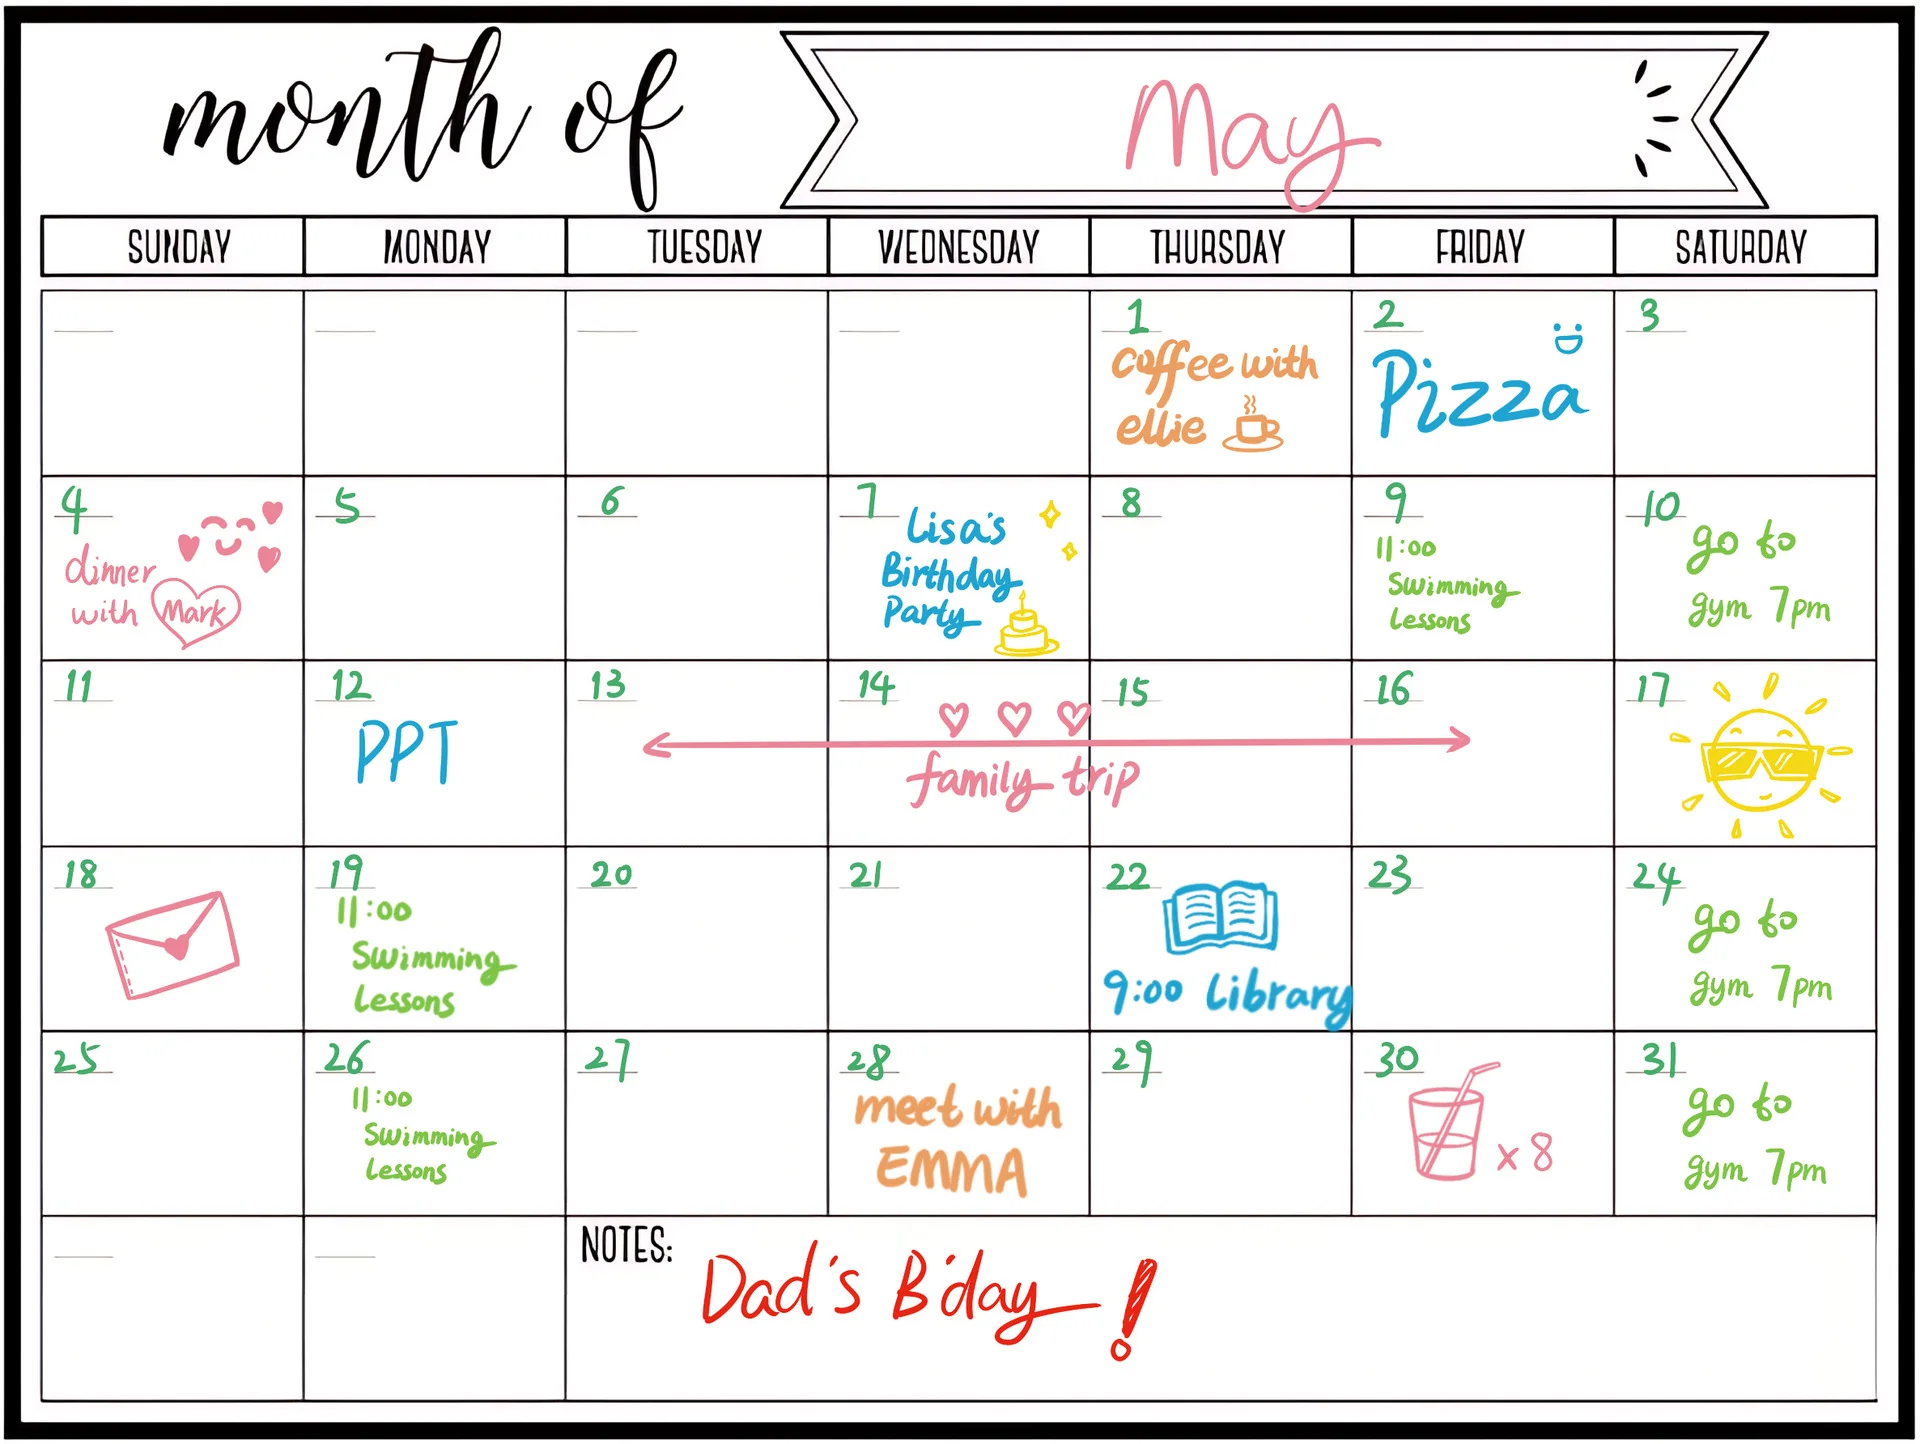 month of
May
SUNDAY MONDAY TUESDAY WEDNESDAY THURSDAY FRIDAY SATURDAY
1
coffee with
ellie
2
Pizza
3
4
dinner
with Mark
5
6
7
Lisa's
Birthday
Party
8
9
11:00
Swimming
Lessons
10
go to
gym 7pm
11
12
PPT
13
14
family trip
15
16
17
18
19
11:00
Swimming
Lessons
20
21
22
9:00 Library
23
24
go to
gym 7pm
25
26
11:00
Swimming
Lessons
27
28
meet with
EMMA
29
30
x 8
31
go to
gym 7pm
NOTES:
Dad's B'day !